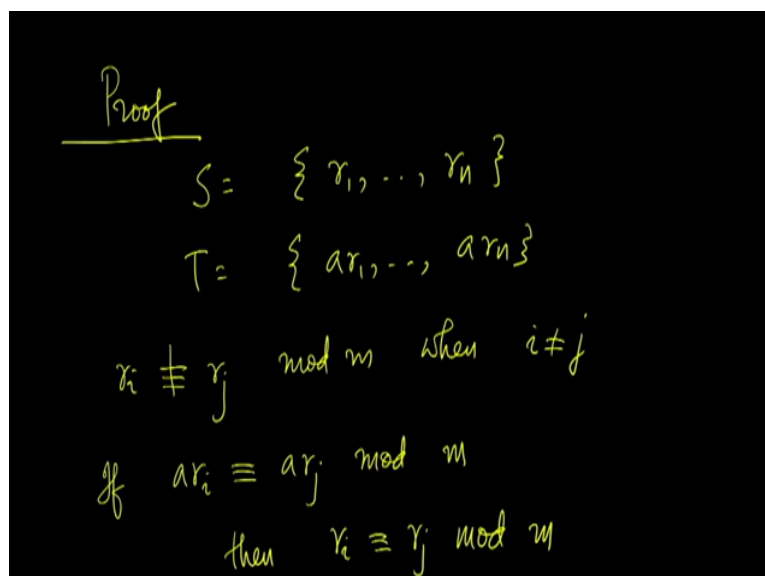 Proof
S = { r₁, .., rₙ }
T = { ar₁, .., arₙ }
rᵢ ≢ rⱼ mod m when i ≠ j
If arᵢ ≡ arⱼ mod m
then rᵢ ≡ rⱼ mod m